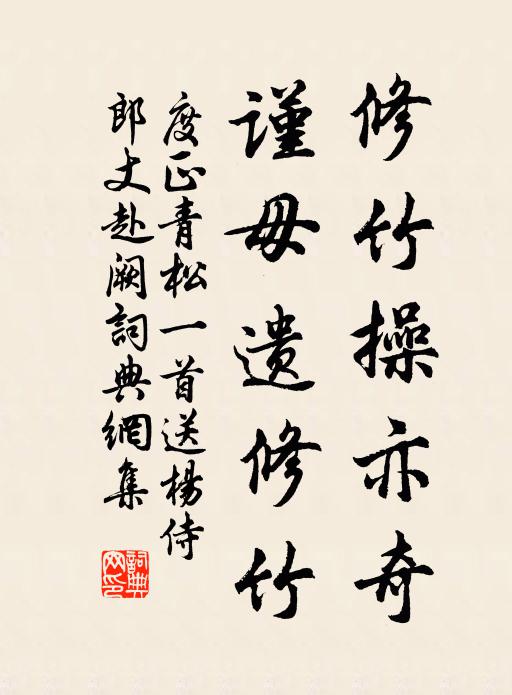 修竹操亦奇
謹毋遺修竹
度正青松一首送楊侍
郎丈赴闕詞典網集
詞典网印